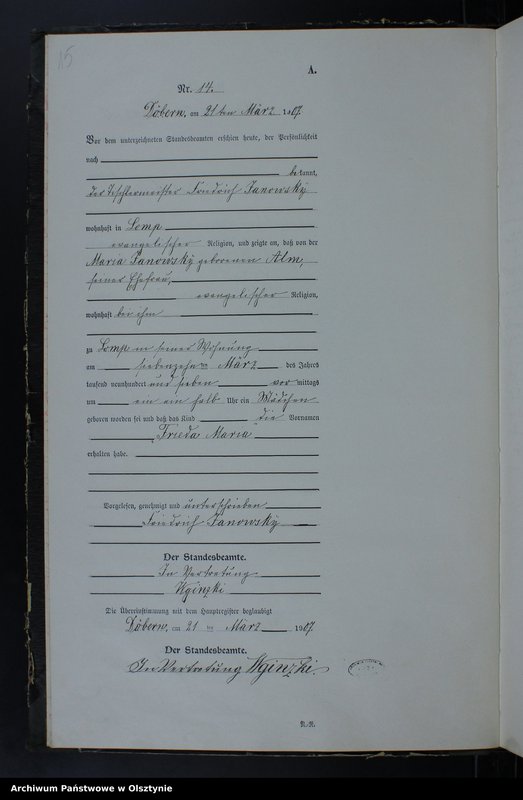 15
A.
Nr. 14.
Döbern, am 21ten März 1907.
Vor dem unterzeichneten Standesbeamten erschien heute, der Persönlichkeit
nach
bekannt,
der Tischlermeister Friedrich Janowsky
wohnhaft in Lomp
evangelischer Religion, und zeigte an, daß von der
Maria Janowsky geborenen Alm,
seiner Ehefrau,
evangelischer Religion,
wohnhaft bei ihm
zu Lomp in seiner Wohnung
am siebenzehnten März des Jahres
tausend neunhundert und sieben vormittags
um ein ein halb Uhr ein Mädchen
geboren worden sei und daß das Kind die Vornamen
Frieda Maria
erhalten habe.
Vorgelesen, genehmigt und unterschrieben
Friedrich Janowsky
Der Standesbeamte.
In Vertretung
Die Übereinstimmung mit dem Hauptregister beglaubigt
Döbern, am 21ten März 1907.
Der Standesbeamte.
In Vertretung
Archiwum Państwowe w Olsztynie